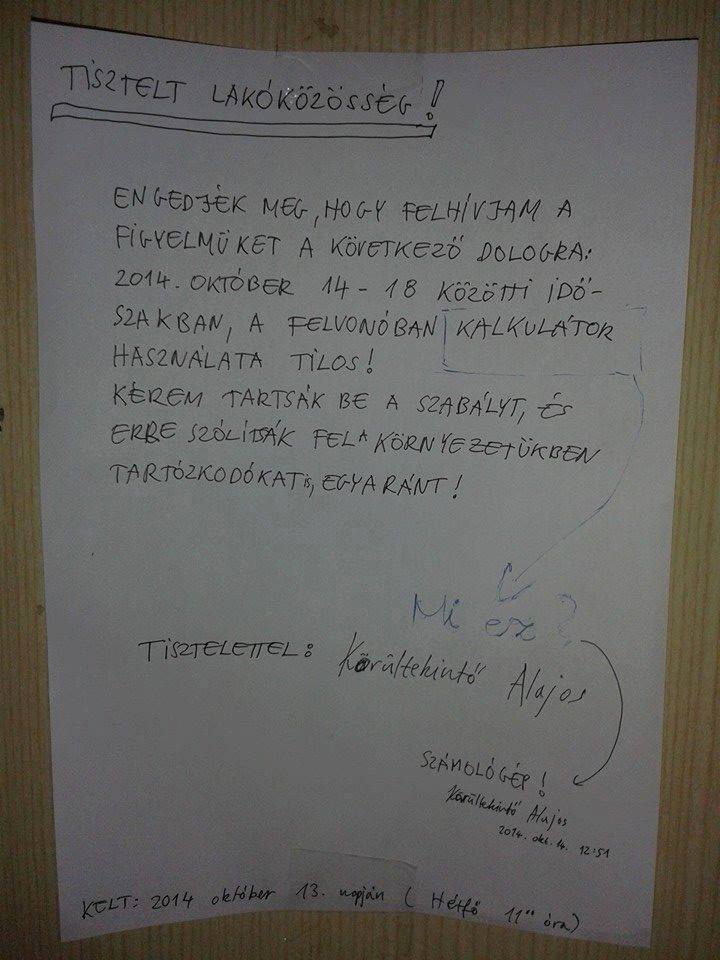 TISZTELT LAKÓKÖZÖSSÉG!
ENGEDJÉK MEG, HOGY FELHÍVJAM A
FIGYELMÜKET A KÖVETKEZŐ DOLOGRA:
2014. OKTÓBER 14-18 KÖZÖTTI IDŐ-
SZAKBAN, A FELVONÓBAN KALKULÁTOR
HASZNÁLATA TILOS!
KÉREM TARTSÁK BE A SZABÁLYT, ÉS
ERRE SZÓLÍTSÁK FEL A KÖRNYEZETÜKBEN
TARTÓZKODÓKAT IS, EGYARÁNT!
Mi ez?
TISZTELETTEL: Körültekintő Alajos
SZÁMOLÓGÉP!
Körültekintő Alajos
2014. okt. 14. 12:51
KELT: 2014 október 13. napján (Hétfő 11 óra)